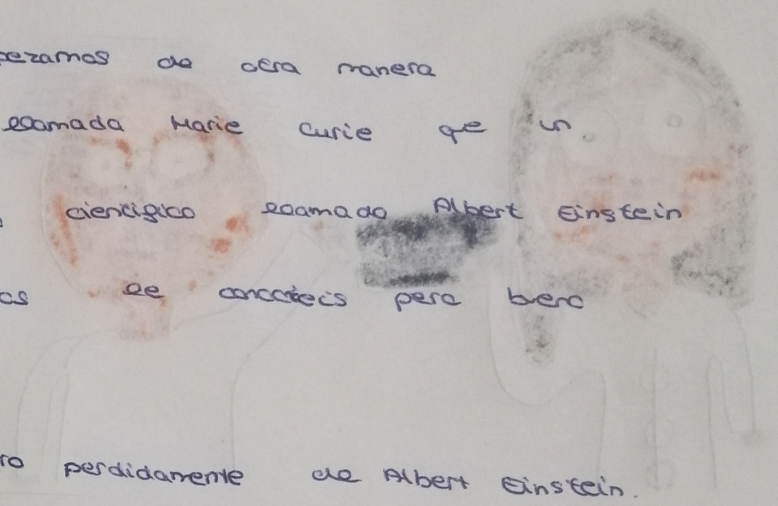 pezamos de otra manera
llamada Marie Curie que un
cientigico llamado Albert Einstein
as le conoceis pero bueno
ro perdidamente de Albert Einstein.